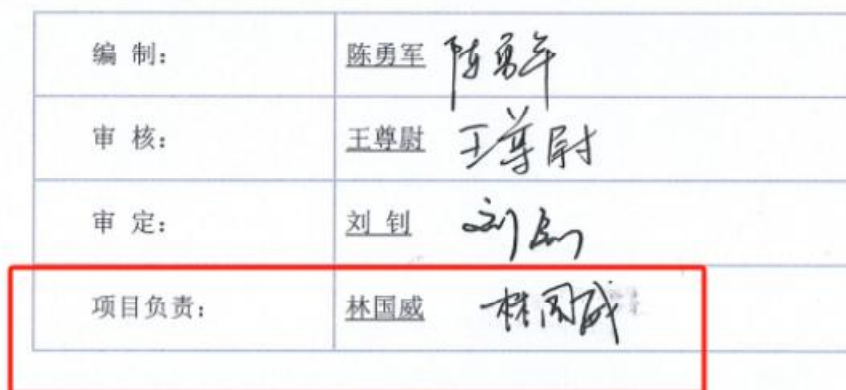 编 制： 陈勇军 陈勇军
审 核： 王尊尉 王尊尉
审 定： 刘 钊 刘钊
项目负责： 林国威 林国威